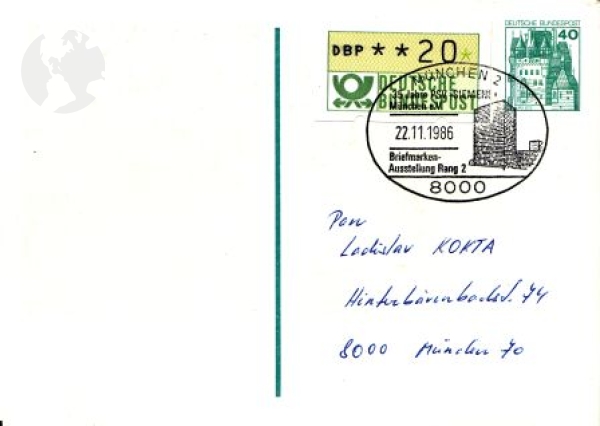 DBP **20*
DEUTSCHE
BUNDESPOST
DEUTSCHE BUNDESPOST
40
MÜNCHEN 2
25 Jahre BSG SIEMENS
München e.V.
22.11.1986
Briefmarken-
Ausstellung Rang 2
8000
Pan
Ladislav KOKTA
Hinterbärenbadstr. 74
8000 München 70